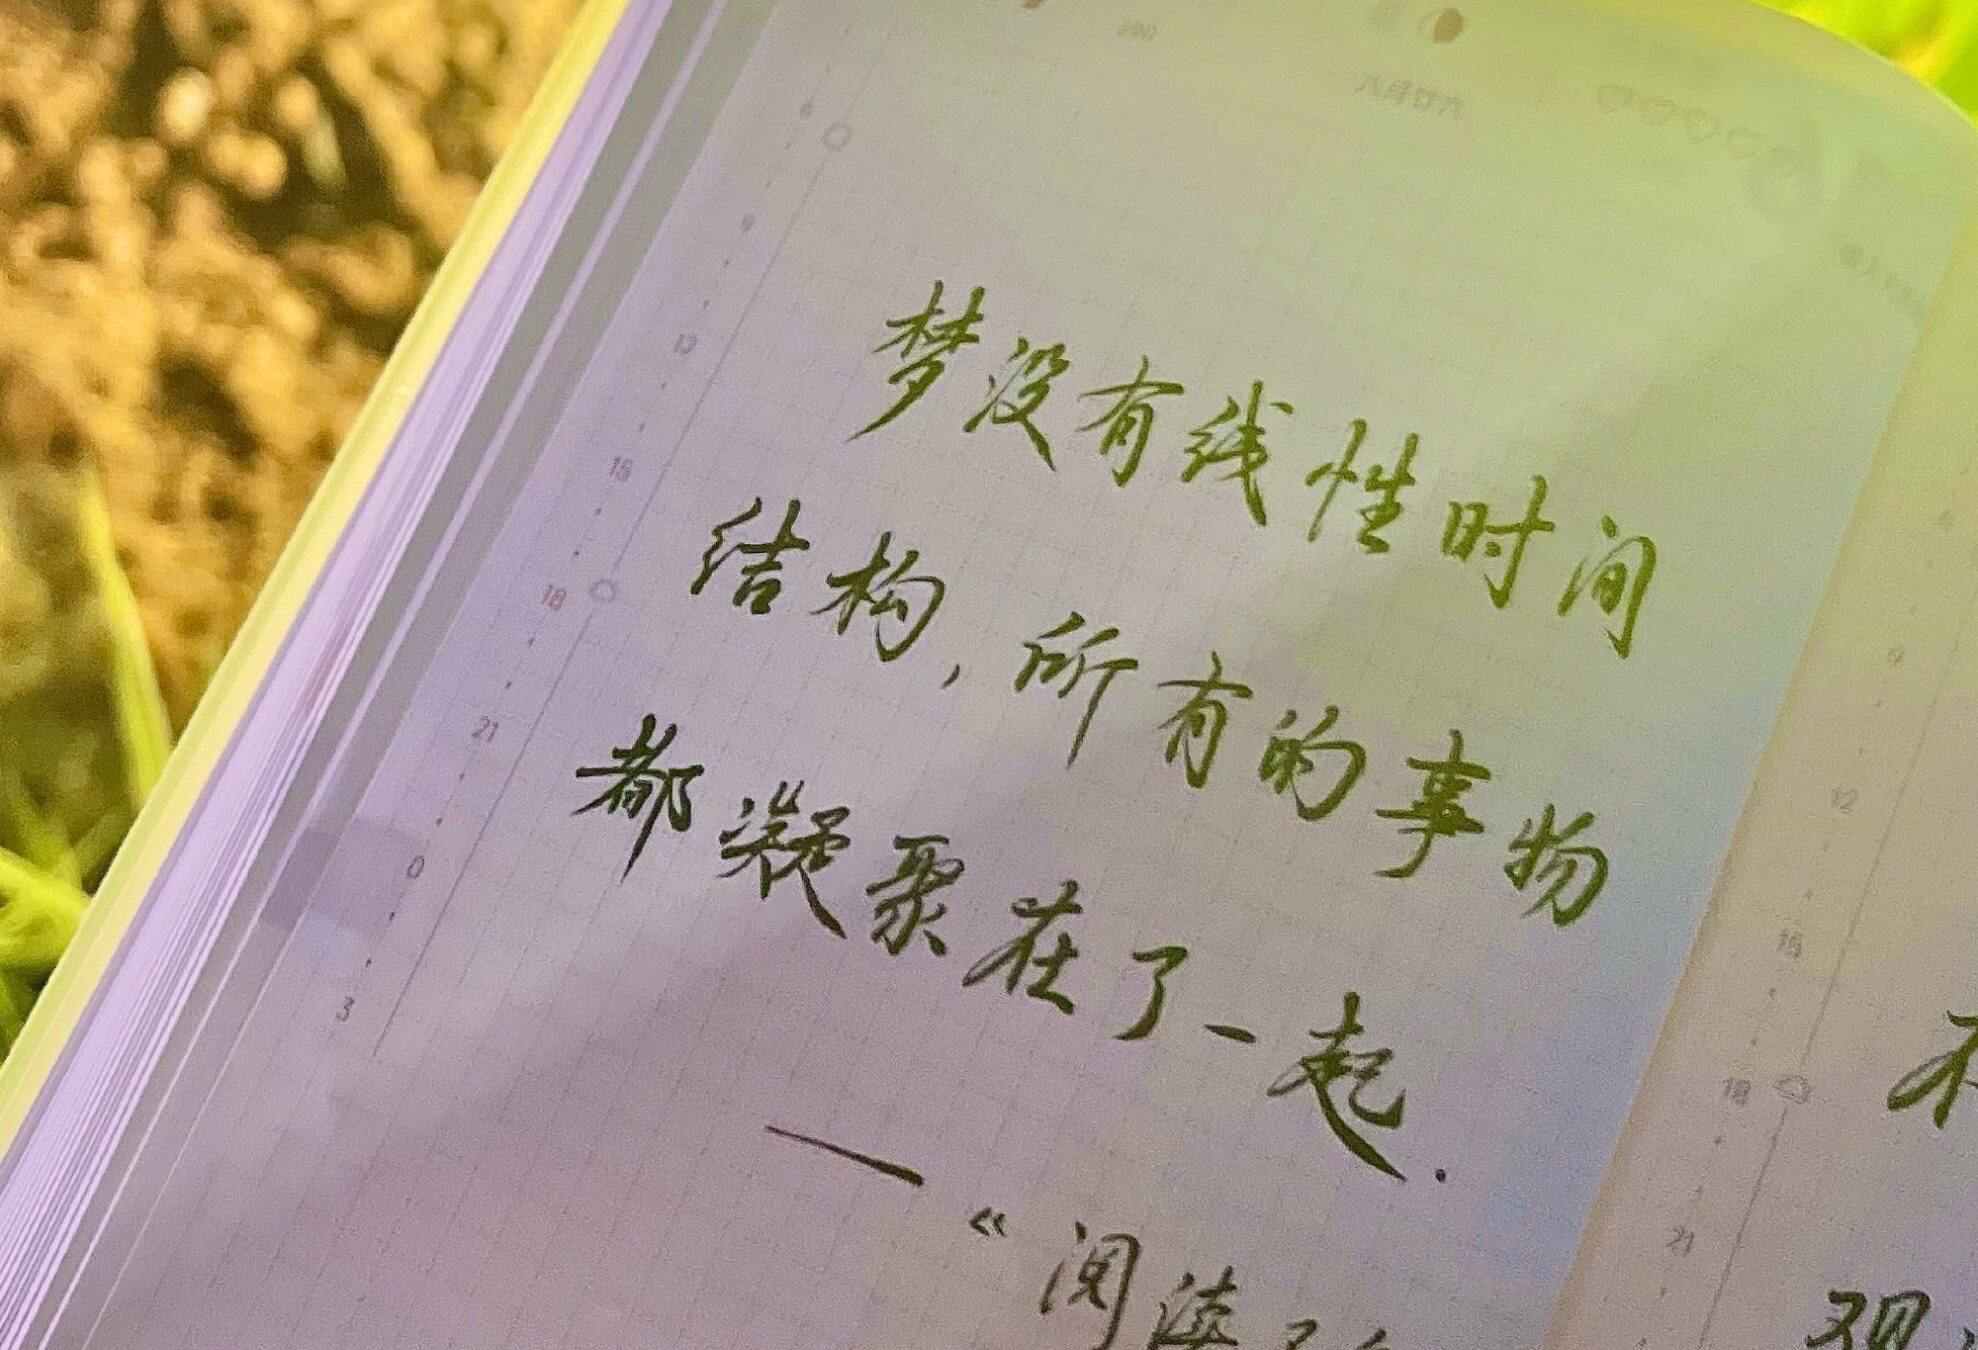 290
八月廿六
6
9
12
15
18
21
0
3
梦没有线性时间
结构,所有的事物
都凝聚在了一起.
—《阅读
9
12
15
18
21
观